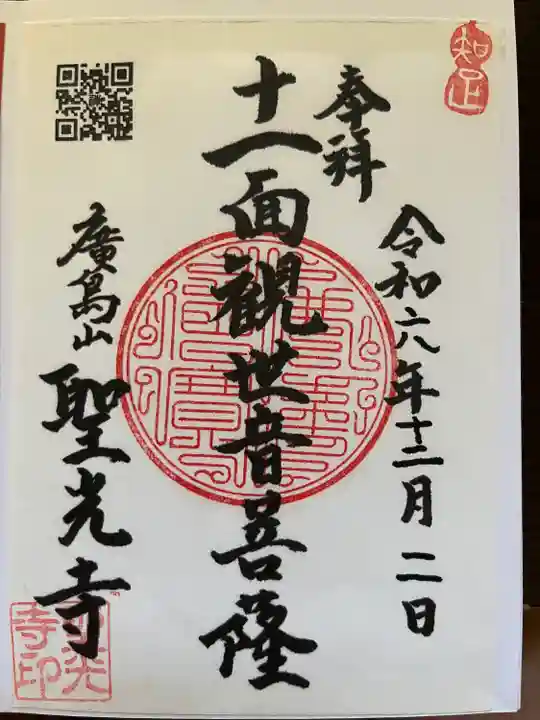 知足
奉拝
令和六年十二月二日
十一面観世音菩薩
廣島山
聖光寺
聖光
寺印